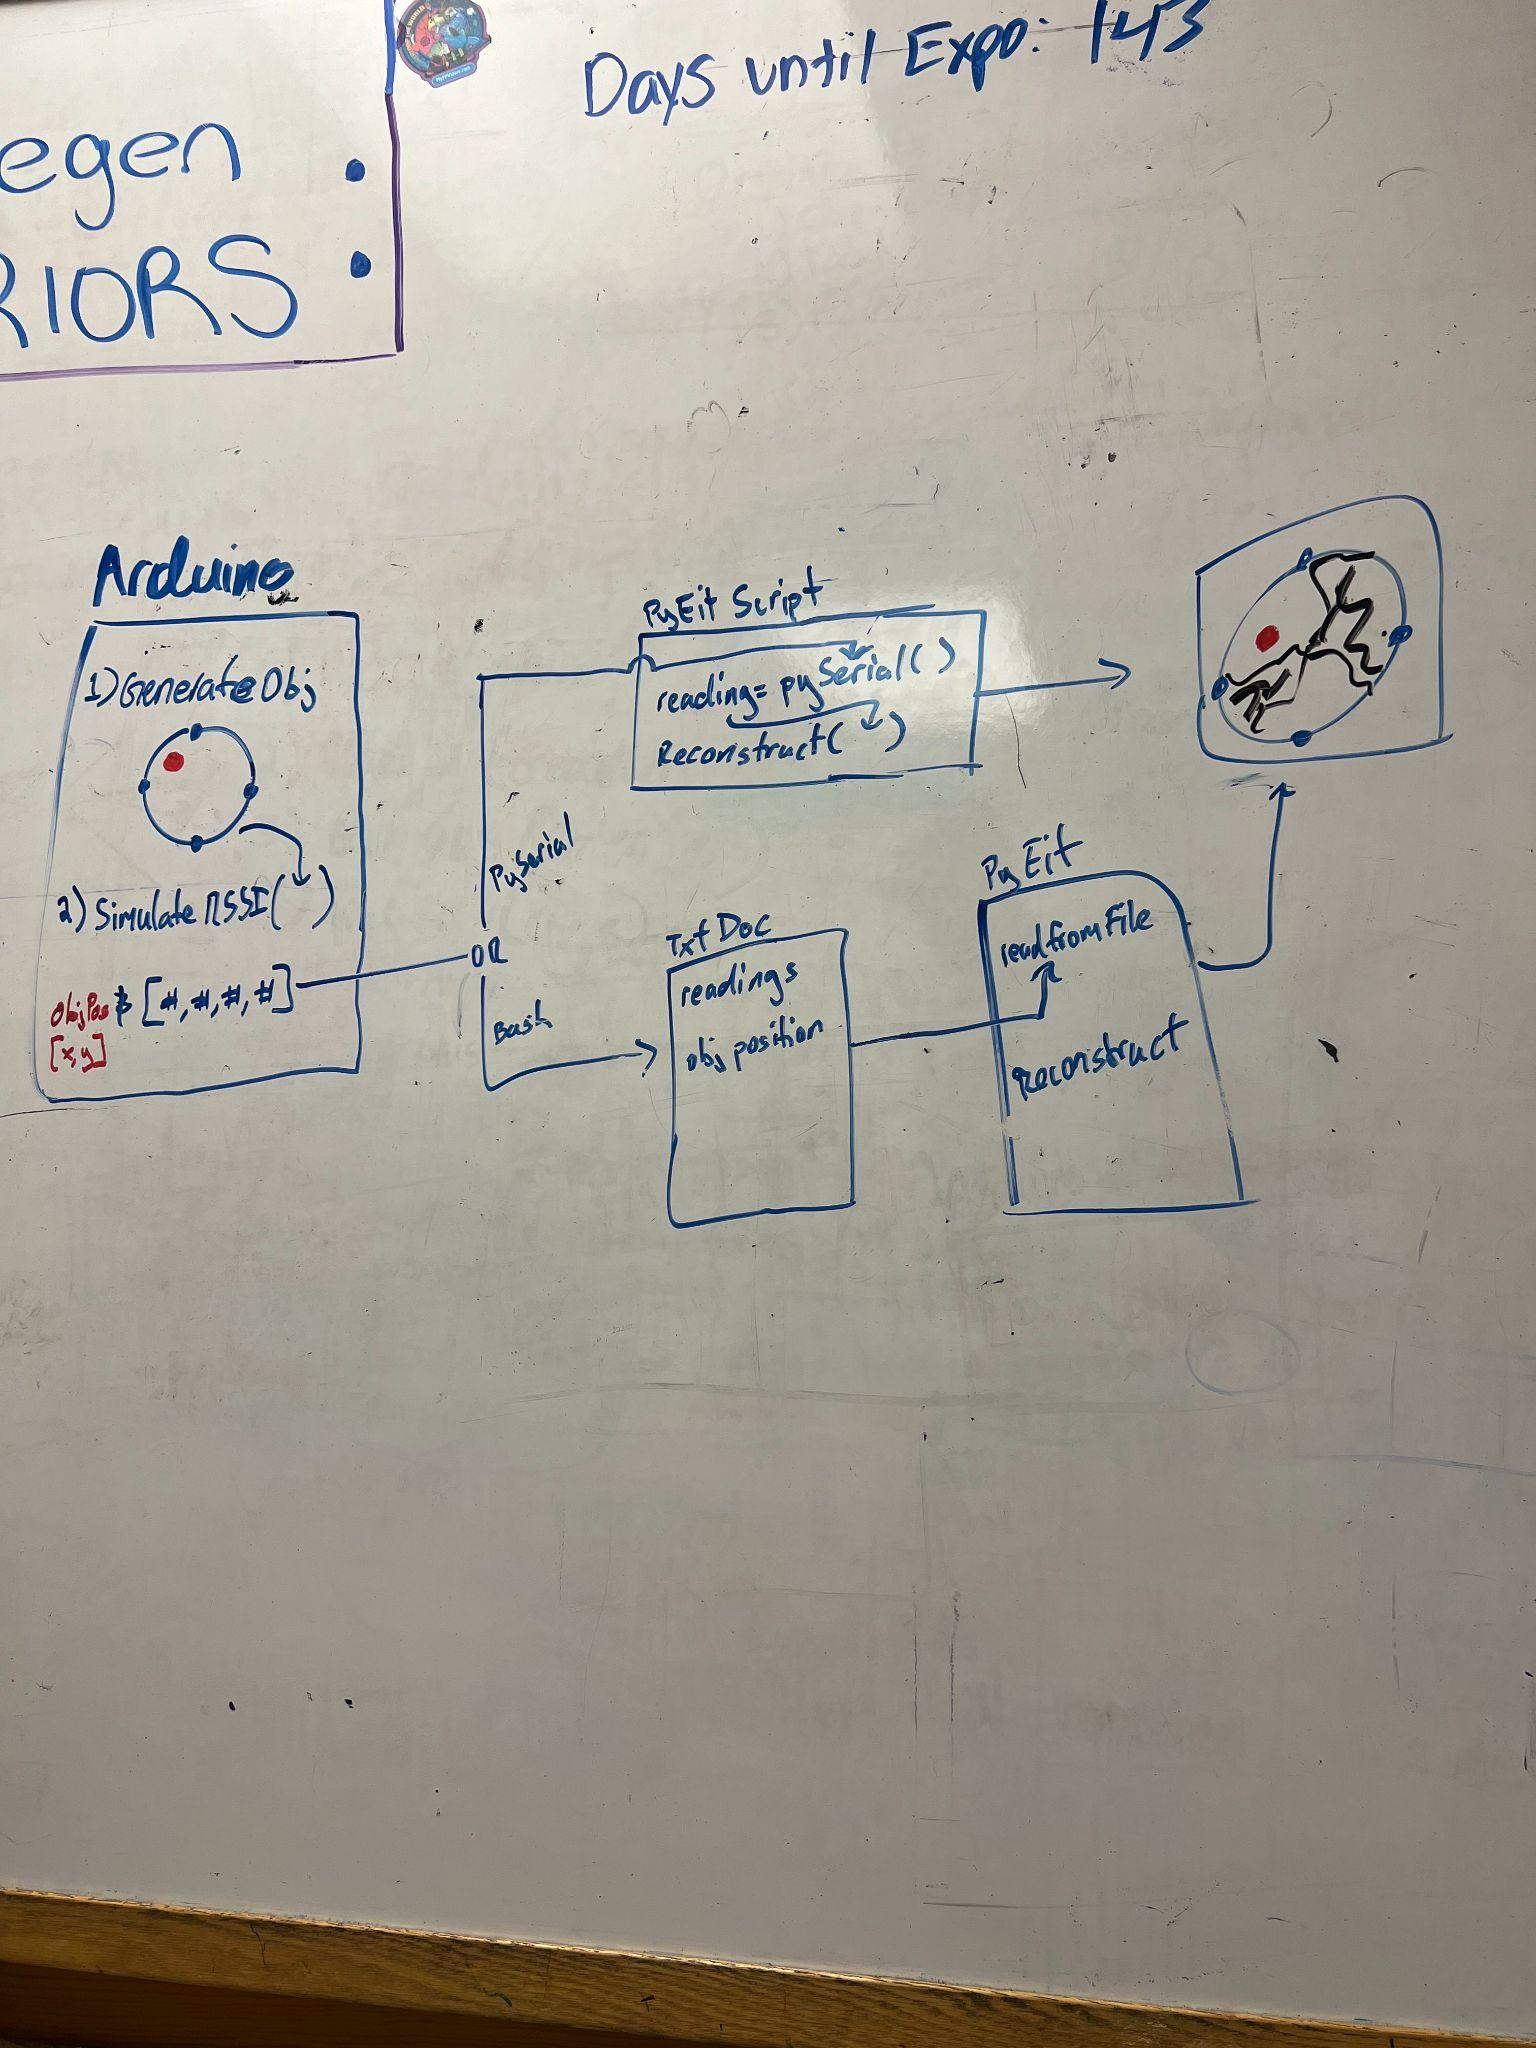 Days until Expo: 143
egen
RIORS
Arduino
1) Generate Obj
2) Simulate RSSI( )
ObjPos & [#, #, #, #]
[x,y]
OR
PySerial
Bash
PyEit Script
reading= pySerial( )
Reconstruct( )
Txt Doc
readings
obj position
PyEit
readfromFile
Reconstruct